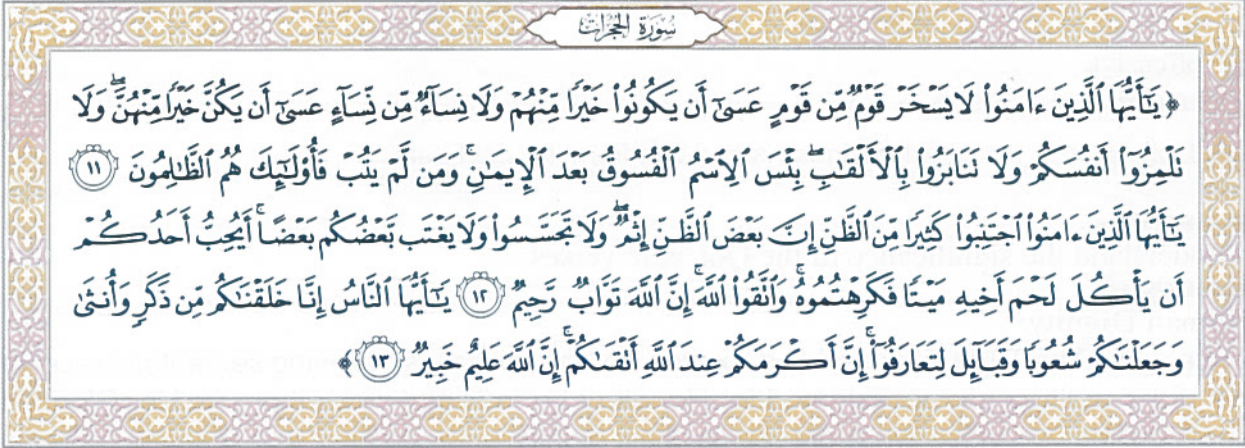 سُورَةُ الحُجُرَاتِ
﴿ يَـٰٓأَيُّهَا ٱلَّذِينَ ءَامَنُوا۟ لَا يَسْخَرْ قَوْمٌ مِّن قَوْمٍ عَسَىٰٓ أَن يَكُونُوا۟ خَيْرًا مِّنْهُمْ وَلَا نِسَآءٌ مِّن نِّسَآءٍ عَسَىٰٓ أَن يَكُنَّ خَيْرًا مِّنْهُنَّ ۖ وَلَا
تَلْمِزُوٓا۟ أَنفُسَكُمْ وَلَا تَنَابَزُوا۟ بِٱلْأَلْقَـٰبِ ۖ بِئْسَ ٱلِٱسْمُ ٱلْفُسُوقُ بَعْدَ ٱلْإِيمَـٰنِ ۚ وَمَن لَّمْ يَتُبْ فَأُو۟لَـٰٓئِكَ هُمُ ٱلظَّـٰلِمُونَ ١١
يَـٰٓأَيُّهَا ٱلَّذِينَ ءَامَنُوا۟ ٱجْتَنِبُوا۟ كَثِيرًا مِّنَ ٱلظَّنِّ إِنَّ بَعْضَ ٱلظَّنِّ إِثْمٌ ۖ وَلَا تَجَسَّسُوا۟ وَلَا يَغْتَب بَّعْضُكُم بَعْضًا ۚ أَيُحِبُّ أَحَدُكُمْ
أَن يَأْكُلَ لَحْمَ أَخِيهِ مَيْتًا فَكَرِهْتُمُوهُ ۚ وَٱتَّقُوا۟ ٱللَّهَ ۚ إِنَّ ٱللَّهَ تَوَّابٌ رَّحِيمٌ ١٢ يَـٰٓأَيُّهَا ٱلنَّاسُ إِنَّا خَلَقْنَـٰكُم مِّن ذَكَرٍ وَأُنثَىٰ
وَجَعَلْنَـٰكُمْ شُعُوبًا وَقَبَآئِلَ لِتَعَارَفُوٓا۟ ۚ إِنَّ أَكْرَمَكُمْ عِندَ ٱللَّهِ أَتْقَىٰكُمْ ۚ إِنَّ ٱللَّهَ عَلِيمٌ خَبِيرٌ ١٣ ﴾